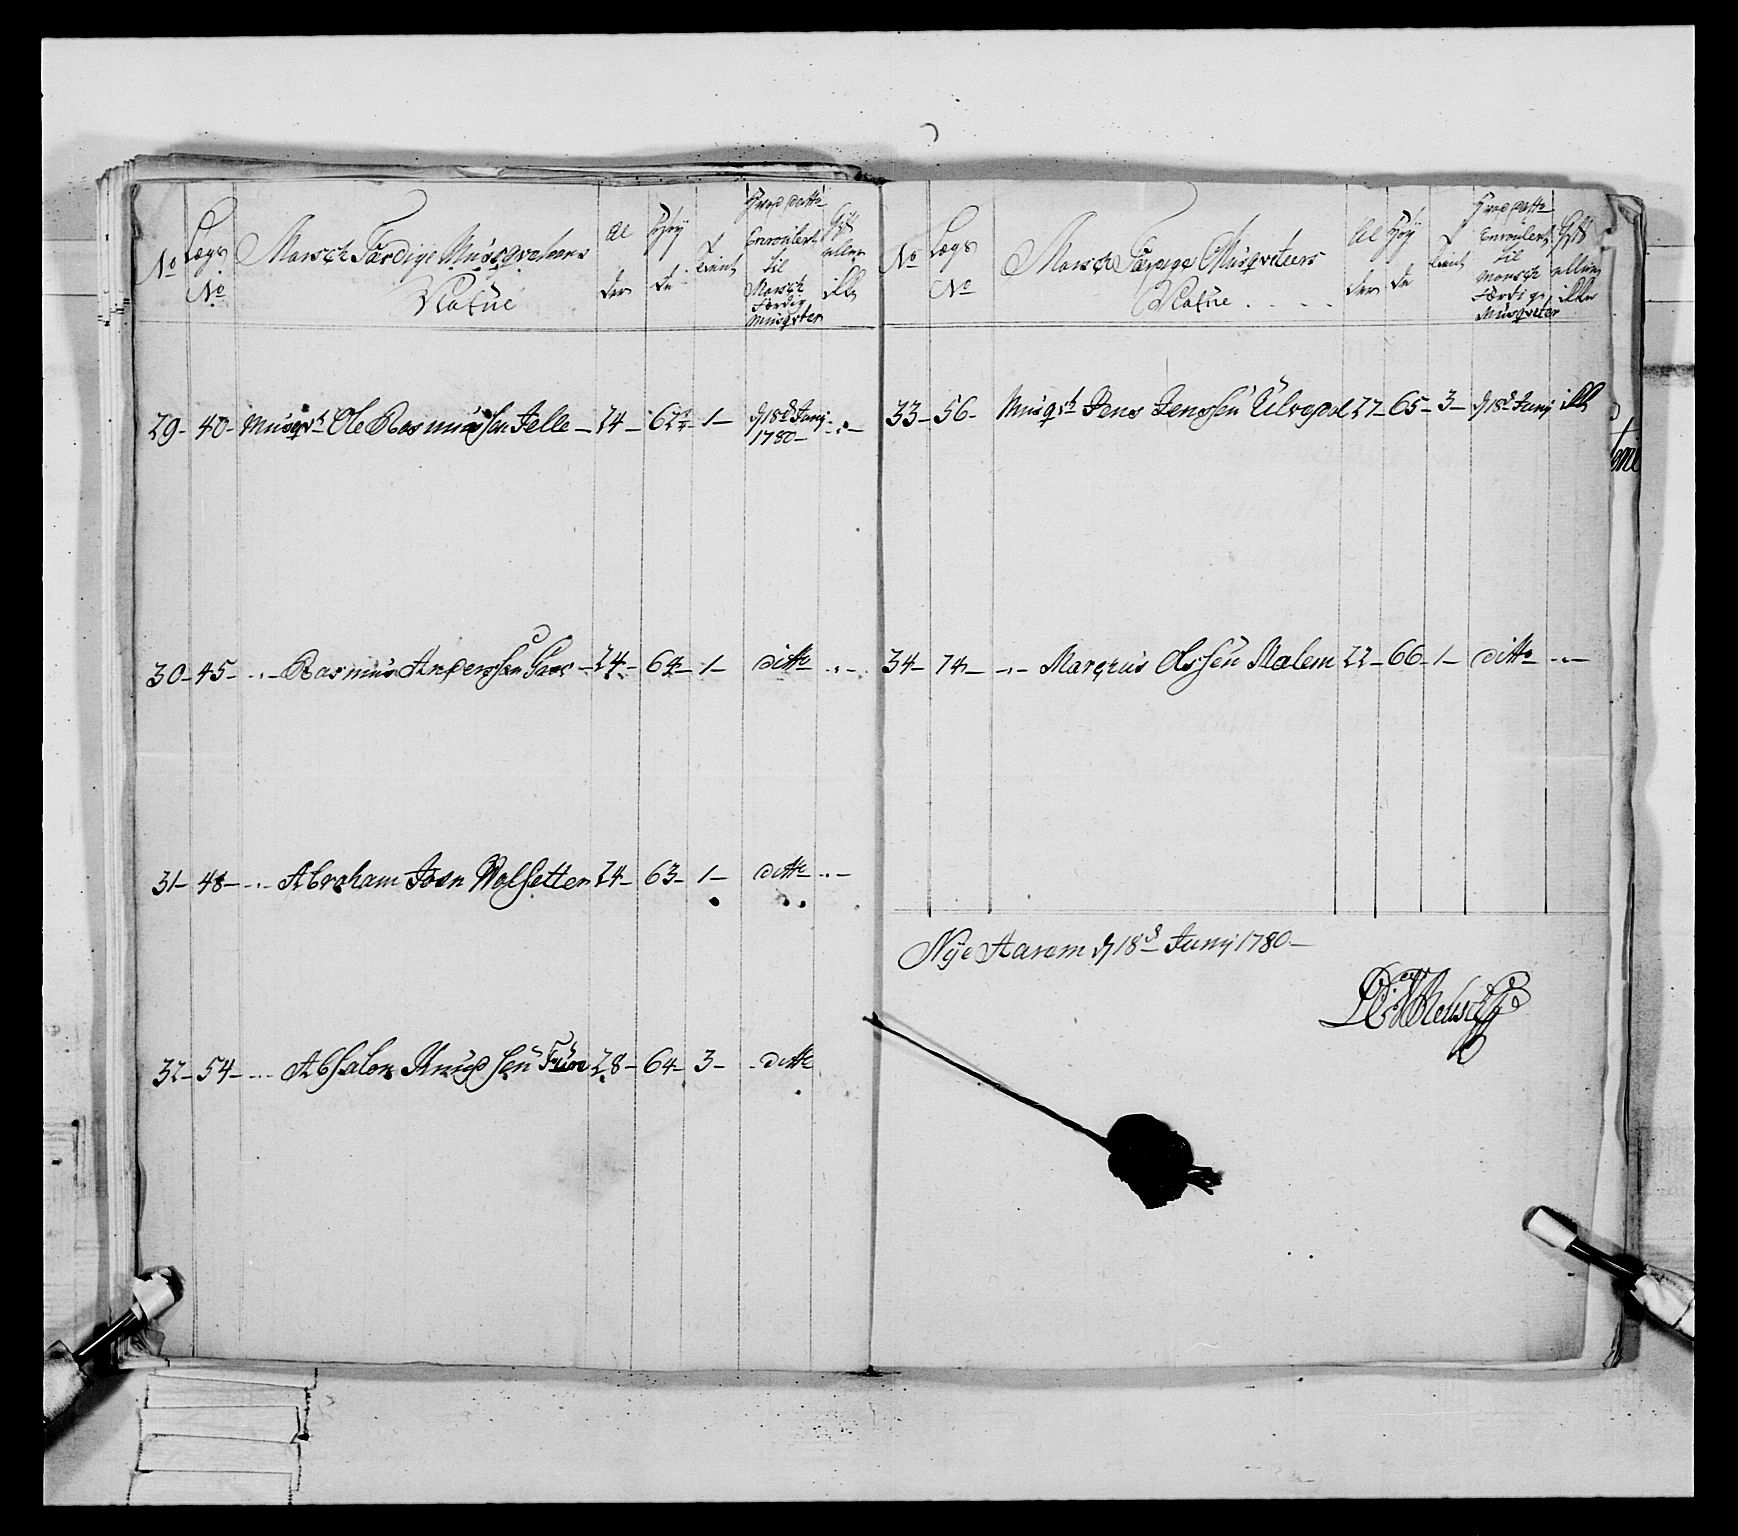 No Lægs No Marsch Færdige Musqveteers Nafne Al der Høy de Tient Hvad datto Enroulert til Marsch Færdig Musqveter Gift eller ikke
29 - 40 - Musqvt Ole Rasmussen Felle - 24 - 62 1/2 1 - d 18d Junij 1780 -
30 - 45 - Rasmus Anderssen - 24 - 64 - 1 - ditto
31 - 48 - Abraham Joen Wolsetter 24 - 63 - 1 - ditto
32 - 54 - Absalon Knudssen 28 - 64 - 3 - ditto
No Lægs No Marsch Færdige Musqveteers Nafne Al der Høy de Tient Hvad datto Enroulert til Marsch Færdige Musqveter Gift eller ikke
33 - 56 - Musqvt Jens Jenssen 27 - 65 - 3 - d 18d Junij ikke
34 - 74 - Marqrus Olssen Malem 22 - 66 - 1 - ditto
Nye Aarem d 18d Junij 1780 -